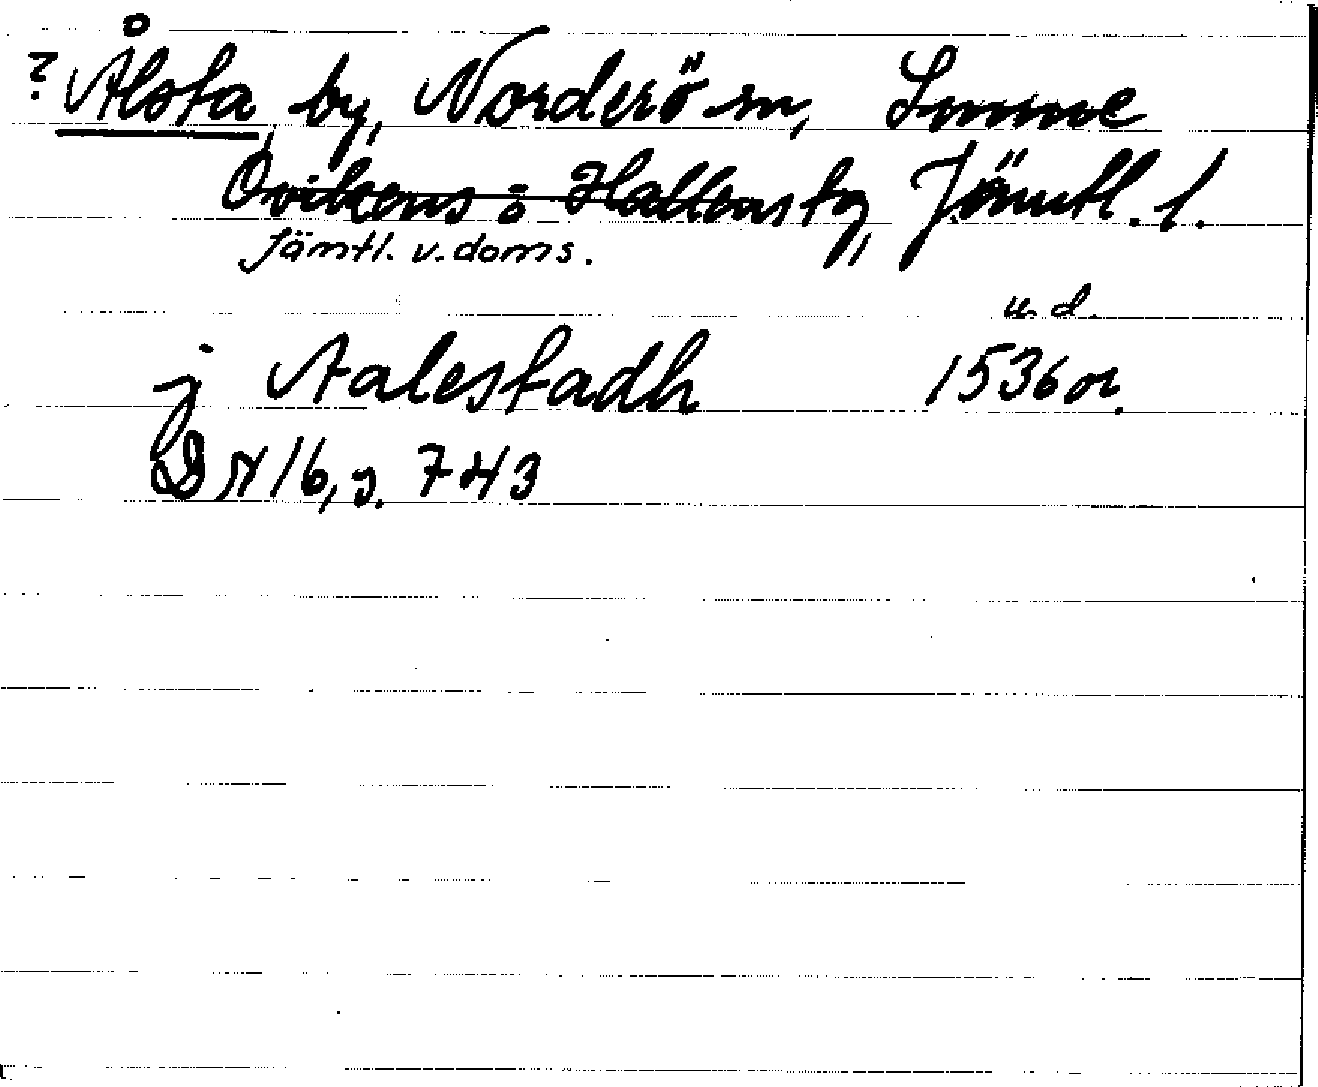 ? Ålsta, by, Norderö sn, Sunne
Ovikens o Hallens tg, Jämtl. l.
Jämtl. v. doms.
u. d.
j Aalestadh 1536 or.
D N 16, s. 743